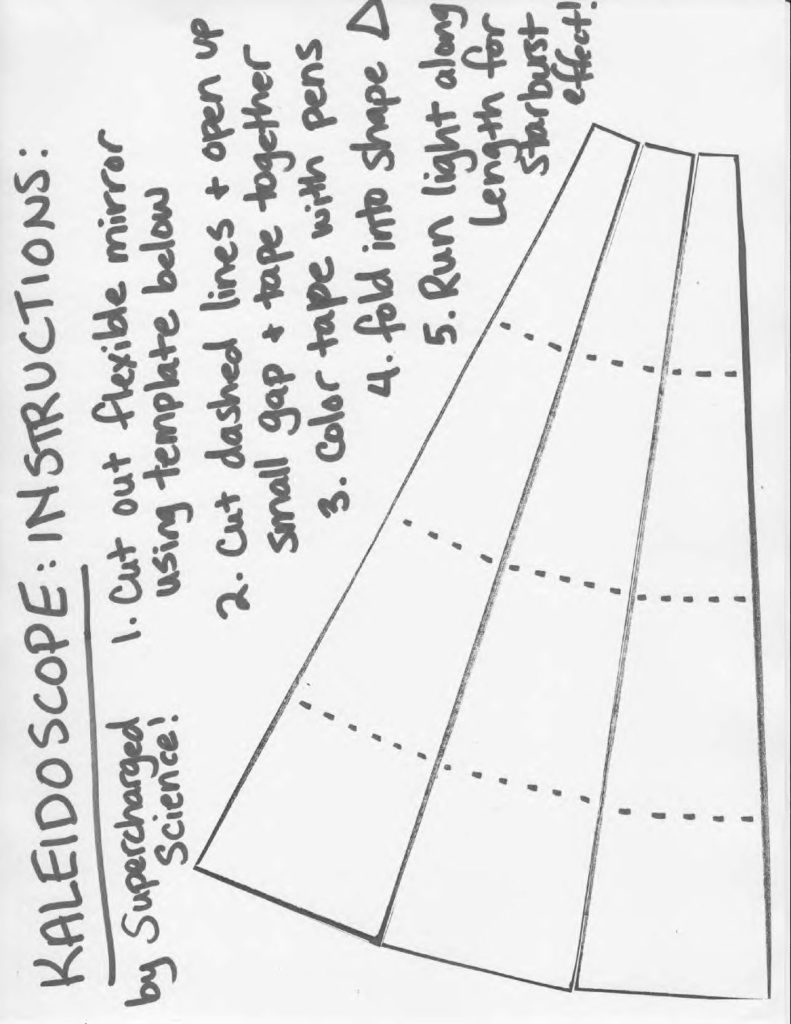 KALEIDOSCOPE: INSTRUCTIONS:
by Supercharged
Science!
1. Cut out flexible mirror
using template below
2. Cut dashed lines + open up
small gap + tape together
3. Color tape with pens
4. fold into shape △
5. Run light along
Length for
Starburst
effect!